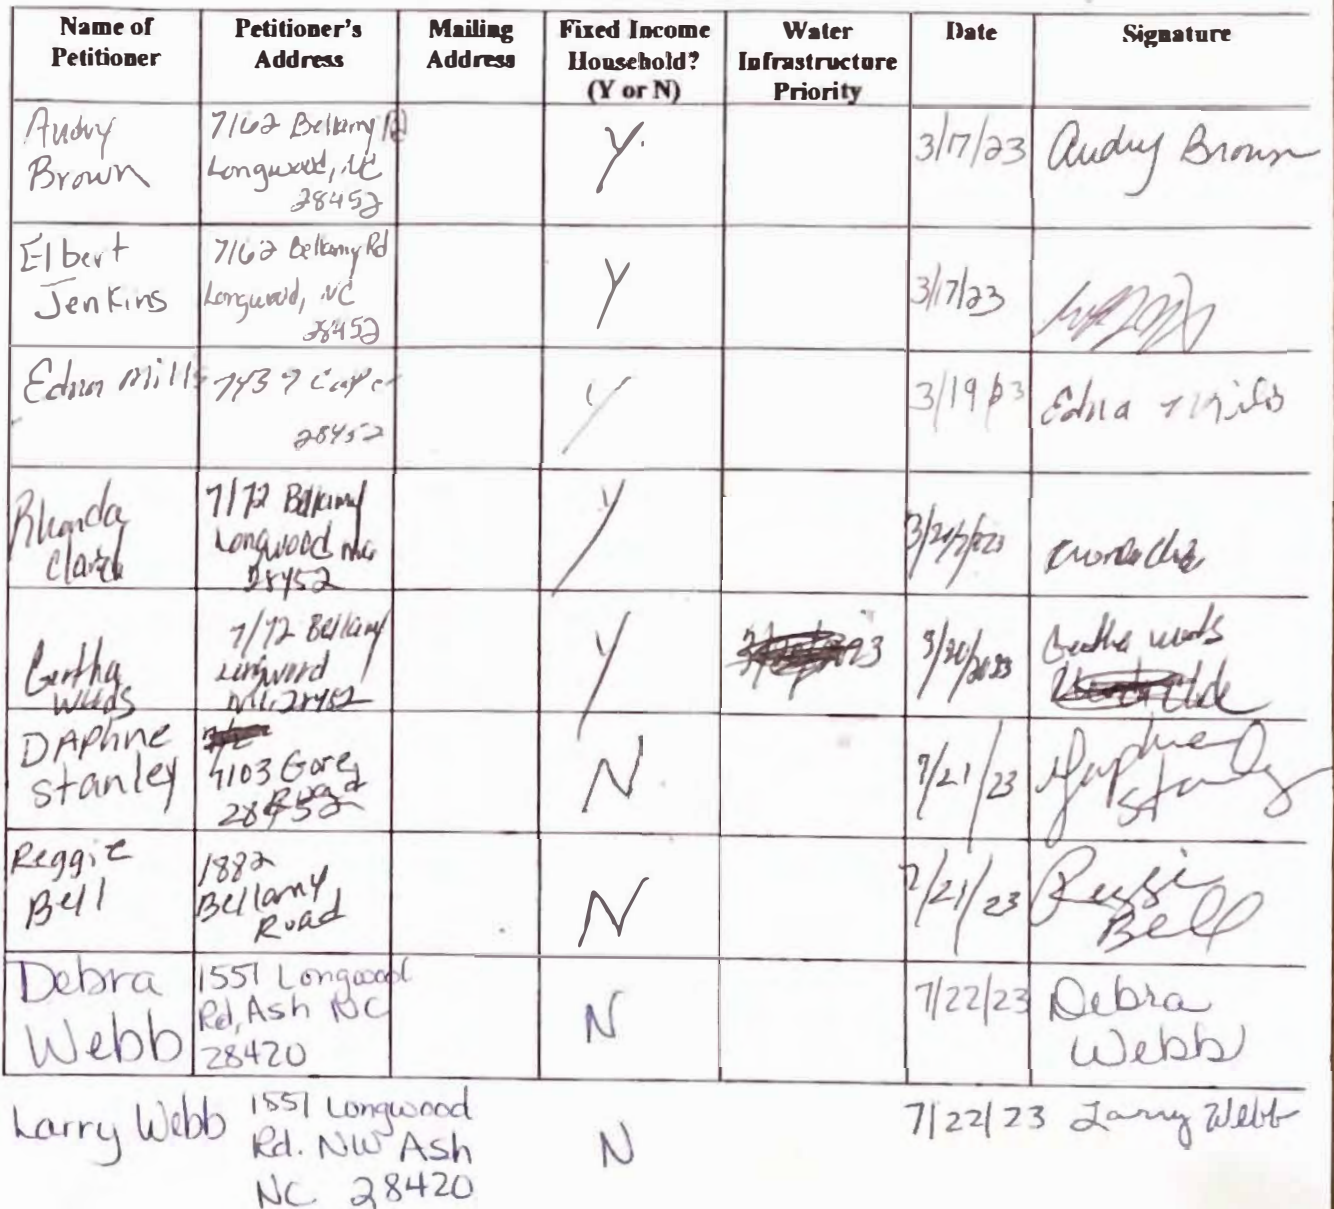 Name of Petitioner
Petitioner's Address
Mailing Address
Fixed Income Household? (Y or N)
Water Infrastructure Priority
Date
Signature
Audry
Brown
7162 Bellamy Rd
Longwood, NC
28452
Y
3/17/23
Audry Brown
Elbert
Jenkins
7162 Bellamy Rd
Longwood, NC
28452
Y
3/17/23
Edna Mills
7437
28452
Y
3/19/23
Edna Mills
Rhonda
Clark
7172 Bellamy
Longwood
28452
Y
Gertha
Woods
7172 Bellamy
Longwood
28452
Y
3/20/2023
Gertha Woods
DAPhne
Stanley
7103 Gore
Road
28452
N
7/21/23
Daphne
Stanley
Reggie
Bell
1882
Bellamy
Road
N
7/21/23
Reggie
Bell
Debra
Webb
1551 Longwood
Rd, Ash NC
28420
N
7/22/23
Debra
Webb
Larry Webb
1551 Longwood
Rd. NW Ash
NC 28420
N
7/22/23
Larry Webb